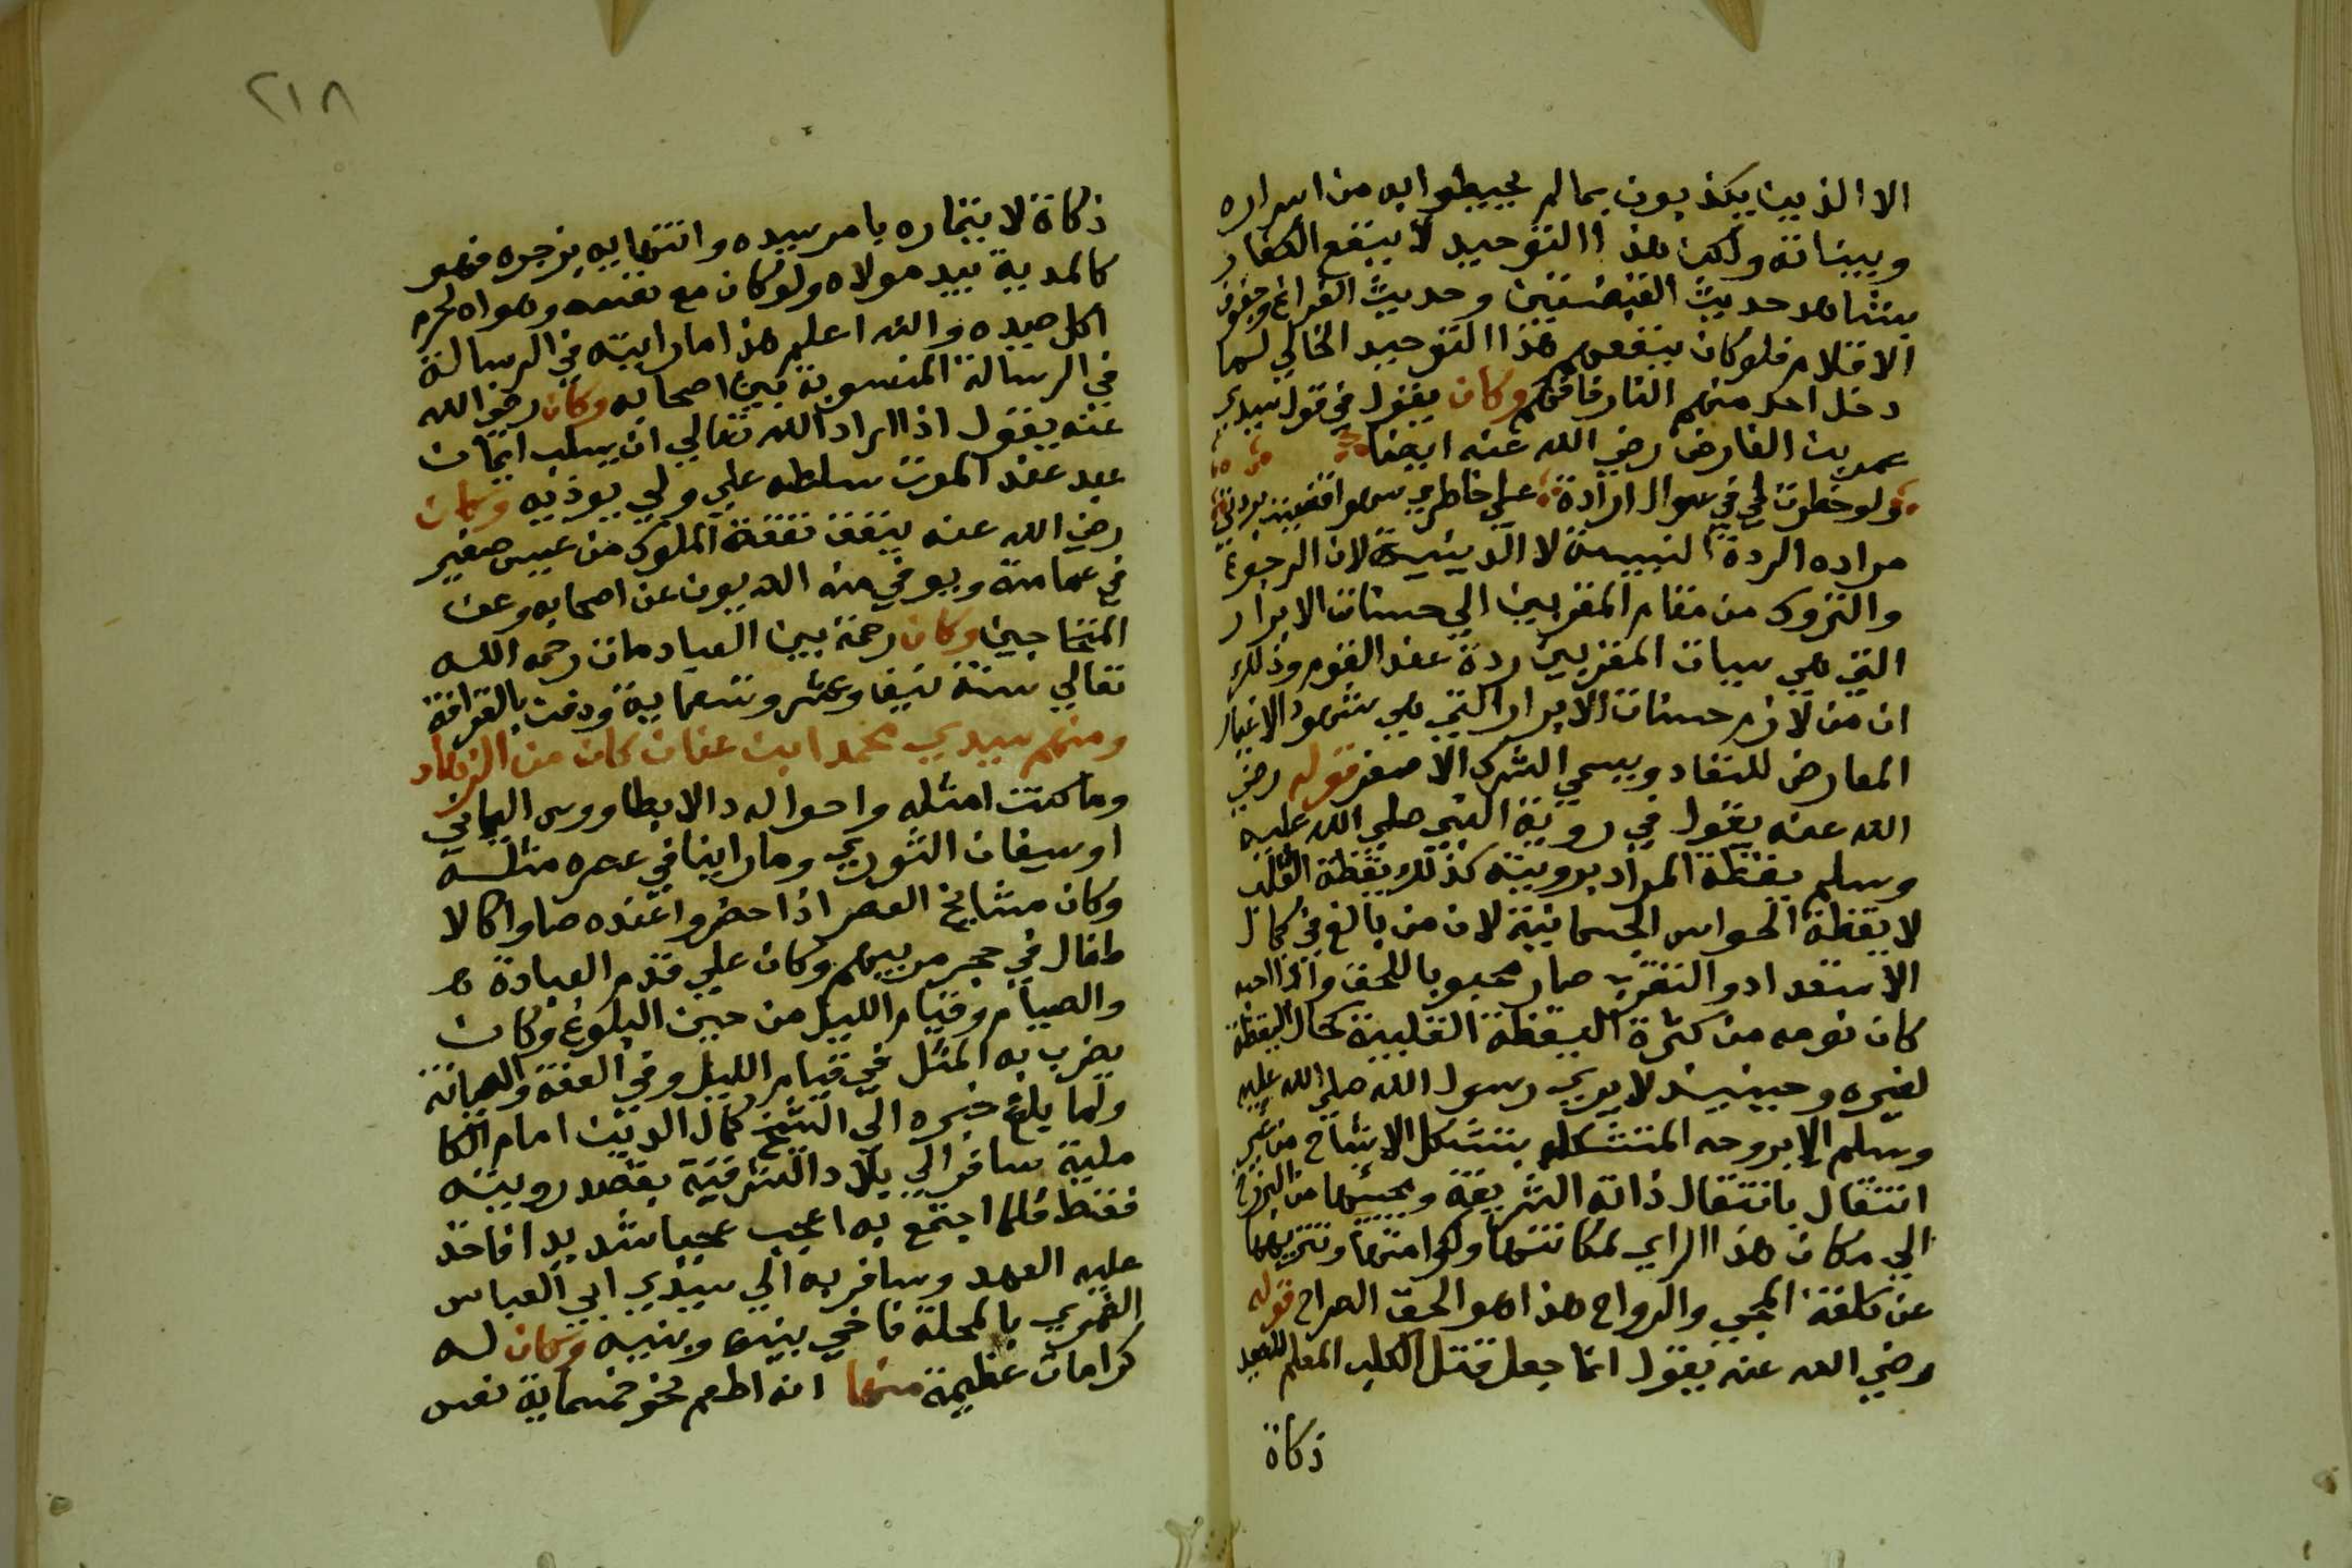 الا الذين يكذبون بما لم يحيطوا به من اسراره
وبيناته ولكن هذا التوحيد لا ينفع الكفار
بشاهد حديث القبضتين وحديث الفراغ وجفوف
الاقلام فلو كان ينفعهم هذا التوحيد الخالي لما
دخل احد منهم النار فافهم وكان يقول في قول سيدي
عمر بن الفارض رضي الله عنه ايضا
ولو خطرت لي في سواك ارادة على خاطري سهوا قضيت بردتي
مراده الردة النسبية لا الدينية لان الرجوع
والنزول من مقام المقربين الي حسنات الابرار
التي هي سيات المقربين ردة عند القوم وذلك
ان من لازم حسنات الابرار التي هي شهود الاغيار
المعارض للنفاد ويسمي الشرك الاصغر قوله رضي
الله عنه يقول في روية النبي صلي الله عليه
وسلم يقظة المراد برويته كذلك يقظة القلب
لا يقظة الحواس الجسمانية لان من بالغ في كمال
الاستعداد والتقرب صار محبوبا للحق واذا احبه
كان نومه من كثرة اليقظة القلبية كحال اليقظة
لغيره وحينيذ لا يري رسول الله صلي الله عليه
وسلم الا بروحه المتشكله بتشكل الاشباح من غير
انتقال بانتقال ذاته الشريفة ومجيئها من البرزخ
الي مكان هذا الراي لمكانتها وكرامتها وتنزيهها
عن كلفة المجي والرواح هذا هو الحق الصراح قوله
رضي الله عنه يقول انما جعل قتل الكلب المعلم للصيد
ذكاة
٢١٨
ذكاة لايتماره بامر سيده وانتهايه بزجره فهو
كالمدية بيد مولاه ولو كان مع نفسه وهواه لحرم
اكل صيده والله اعلم هذا ما رايته في الرسالة
في الرسالة المنسوبة بين اصحابه وكان رضي الله
عنه يقول اذا اراد الله تعالي ان يسلب ايمان
عبد عند الموت سلطه علي ولي يوذيه وكان
رضي الله عنه ينفق نفقة الملوك من عيبس صغير
في عمامته ويوفي منه الديون عن اصحابه وعن
المحتاجين وكان رحمة بين العباد مات رحمه الله
تعالي سنة نيف وعشر وتسعماية ودفن بالقرافة
ومنهم سيدي محمد ابن عنان كان من الزهاد
وما كنت امثله واحواله د الا بطاووس اليماني
او سيفان الثوري وما راينا في عصره مثله
وكان مشايخ العصر اذا حضروا عنده صاروا كالا
طفال في حجر مربيهم وكان علي قدم العبادة
والصيام وقيام الليل من حين البلوغ وكان
يضرب به المثل في قيام الليل وفي العفة والصيانة
ولما بلغ خبره الي الشيخ كمال الدين امام الكا
ملية سافر الي بلاد الشرقية بقصد رويته
فقط فلما اجتمع به اعجب عجبا شديدا فاخذ
عليه العهد وسافر به الي سيدي ابي العباس
الغمري بالمحلة فاخي بينه وبينه وكان له
كرامات عظيمة منها انه اطعم نحو خمسماية نفس